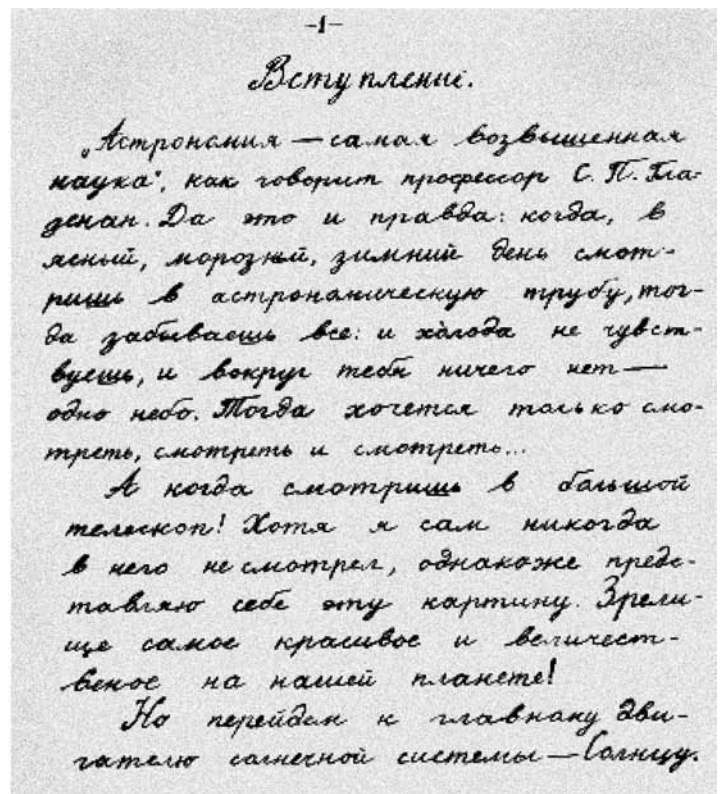 -1-
Вступление.
„Астрономия — самая возвышенная
наука“, как говорит профессор С. П. Гла-
денан. Да это и правда: когда, в
ясный, морозный, зимний день смот-
ришь в астрономическую трубу, тог-
да забываешь все: и холода не чувст-
вуешь, и вокруг тебя ничего нет —
одно небо. Тогда хочется только смо-
треть, смотреть и смотреть...
А когда смотришь в большой
телескоп! Хотя я сам никогда
в него не смотрел, однакоже предс-
тавляю себе эту картину. Зрели-
ще самое красивое и величест-
веное на нашей планете!
Но перейдем к главному дви-
гателю солнечной системы — Солнцу.